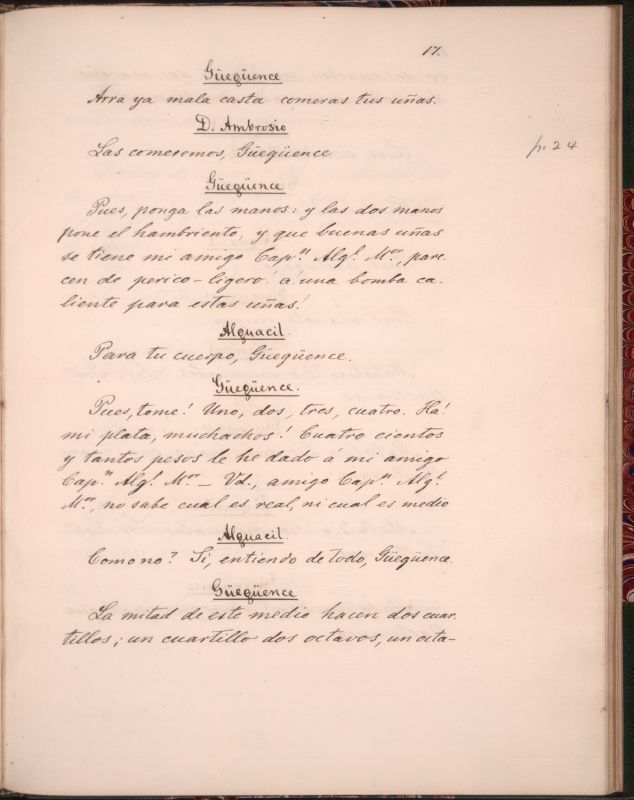 17.
Güegüence
Arra ya mala casta comeras tus uñas.
D. Ambrosio
Las comeremos, Güegüence
p. 24
Güegüence
Pues, ponga las manos: y las dos manos
pone el hambriento, y que buenas uñas
se tiene mi amigo Capⁿ. Algˡ. Mᵒʳ., pare-
cen de perico-ligero! á una bomba ca-
liente para estas uñas!
Alguacil.
Para tu cuerpo, Güegüence.
Güegüence.
Pues, tome! Uno, dos, tres, cuatro. Ha!
mi plata, muchachos! Cuatro cientos
y tantos pesos le he dado á mi amigo
Capⁿ. Algˡ. Mᵒʳ — Vd., amigo Capⁿ Algˡ.
Mᵒʳ., no sabe cual es real, ni cual es medio
Alguacil.
Como no? Si, entiendo de todo, Güegüence.
Güegüence
La mitad de este medio hacen dos cuar-
tillos; un cuartillo dos octavos, un octa-